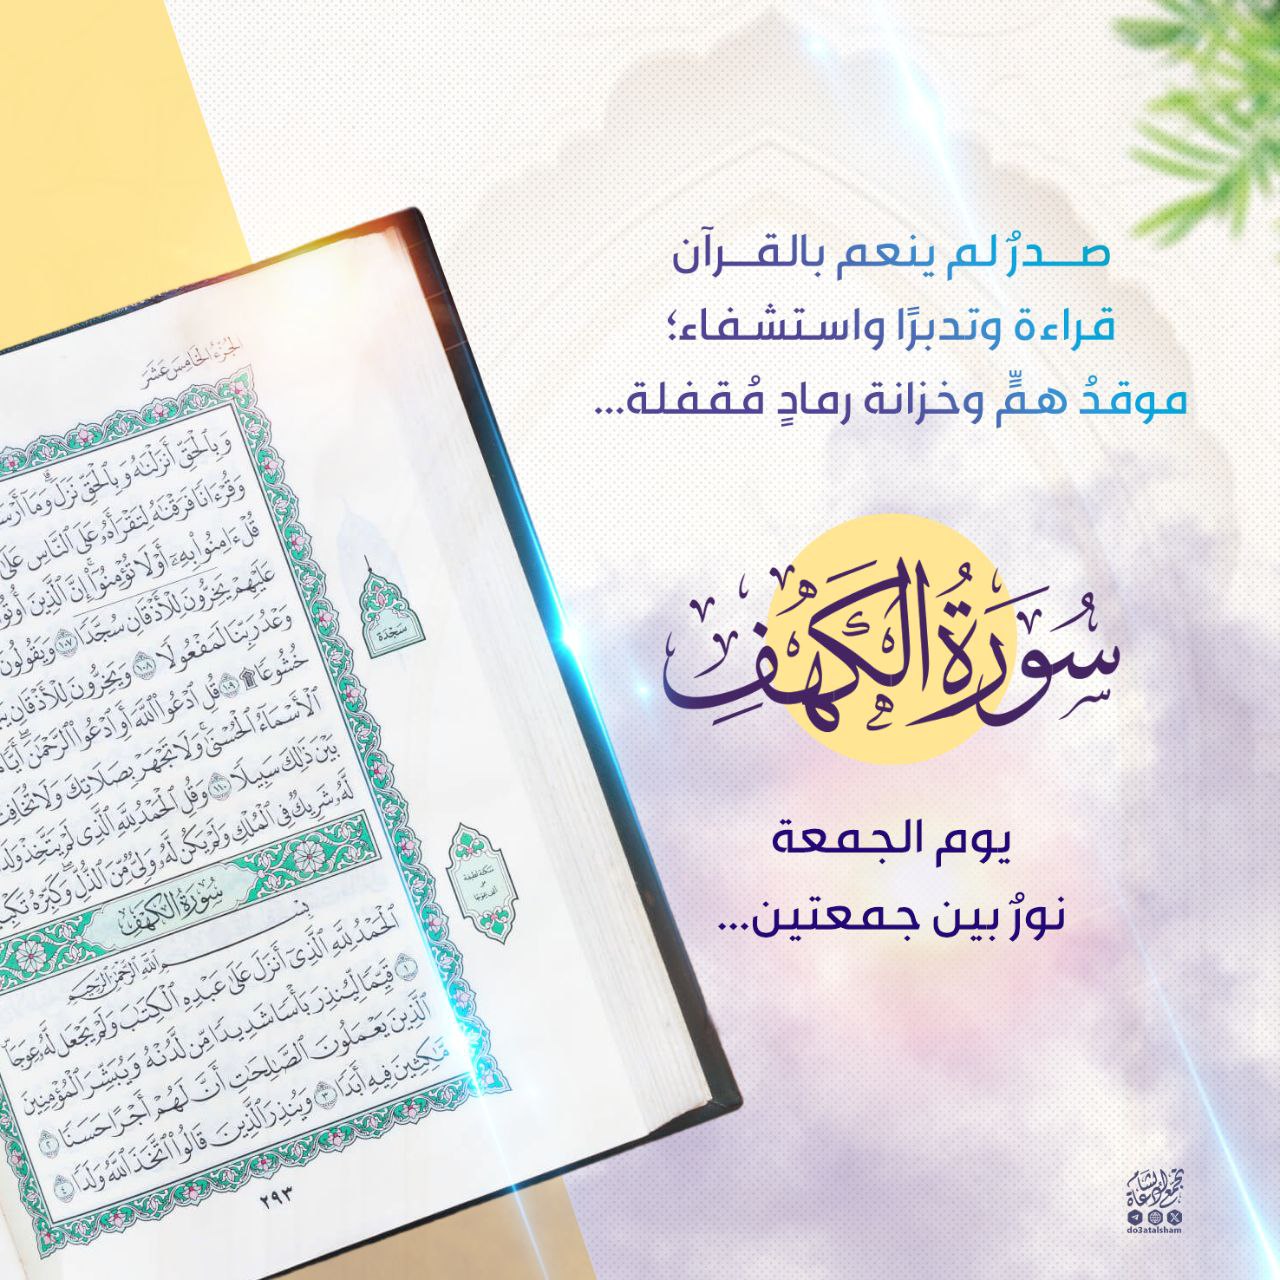 صدرٌ لم ينعم بالقرآن
قراءة وتدبرًا واستشفاء؛
موقدُ همٍّ وخزانة رمادٍ مُقفلة...
سُورَةُ الكَهْفِ
يوم الجمعة
نورٌ بين جمعتين...
الجُزْءُ الخَامِسَ عَشَرَ
وَبِٱلْحَقِّ أَنزَلْنَٰهُ وَبِٱلْحَقِّ نَزَلَ ۗ وَمَآ
وَقُرْءَانًا فَرَقْنَٰهُ لِتَقْرَأَهُۥ عَلَى ٱلنَّاسِ
قُلْ ءَامِنُوا۟ بِهِۦٓ أَوْ لَا تُؤْمِنُوٓا۟ ۚ إِنَّ ٱلَّذِينَ
عَلَيْهِمْ يَخِرُّونَ لِلْأَذْقَانِ سُجَّدًا ١٠٧ وَيَقُولُونَ
وَعْدُ رَبِّنَا لَمَفْعُولًا ١٠٨ وَيَخِرُّونَ لِلْأَذْقَانِ
خُشُوعًا ۩ ١٠٩ قُلِ ٱدْعُوا۟ ٱللَّهَ أَوِ ٱدْعُوا۟ ٱلرَّحْمَٰنَ ۖ
ٱلْأَسْمَآءُ ٱلْحُسْنَىٰ ۚ وَلَا تَجْهَرْ بِصَلَاتِكَ وَلَا
بَيْنَ ذَٰلِكَ سَبِيلًا ١١٠ وَقُلِ ٱلْحَمْدُ لِلَّهِ ٱلَّذِى لَمْ يَتَّخِذْ
لَّهُۥ شَرِيكٌ فِى ٱلْمُلْكِ وَلَمْ يَكُن لَّهُۥ وَلِىٌّ مِّنَ ٱلذُّلِّ ۖ وَكَبِّرْهُ
سُورَةُ الكَهْفِ
بِسْمِ ٱللَّهِ ٱلرَّحْمَٰنِ ٱلرَّحِيمِ
ٱلْحَمْدُ لِلَّهِ ٱلَّذِىٓ أَنزَلَ عَلَىٰ عَبْدِهِ ٱلْكِتَٰبَ وَلَمْ يَجْعَل لَّهُۥ عِوَجَا
١ قَيِّمًا لِّيُنذِرَ بَأْسًا شَدِيدًا مِّن لَّدُنْهُ وَيُبَشِّرَ ٱلْمُؤْمِنِينَ
ٱلَّذِينَ يَعْمَلُونَ ٱلصَّٰلِحَٰتِ أَنَّ لَهُمْ أَجْرًا حَسَنًا ٢
مَّٰكِثِينَ فِيهِ أَبَدًا ٣ وَيُنذِرَ ٱلَّذِينَ قَالُوا۟ ٱتَّخَذَ ٱللَّهُ وَلَدًا ٤
٢٩٣
سَجْدَة
تجمع دعاة الشام
do3atalsham